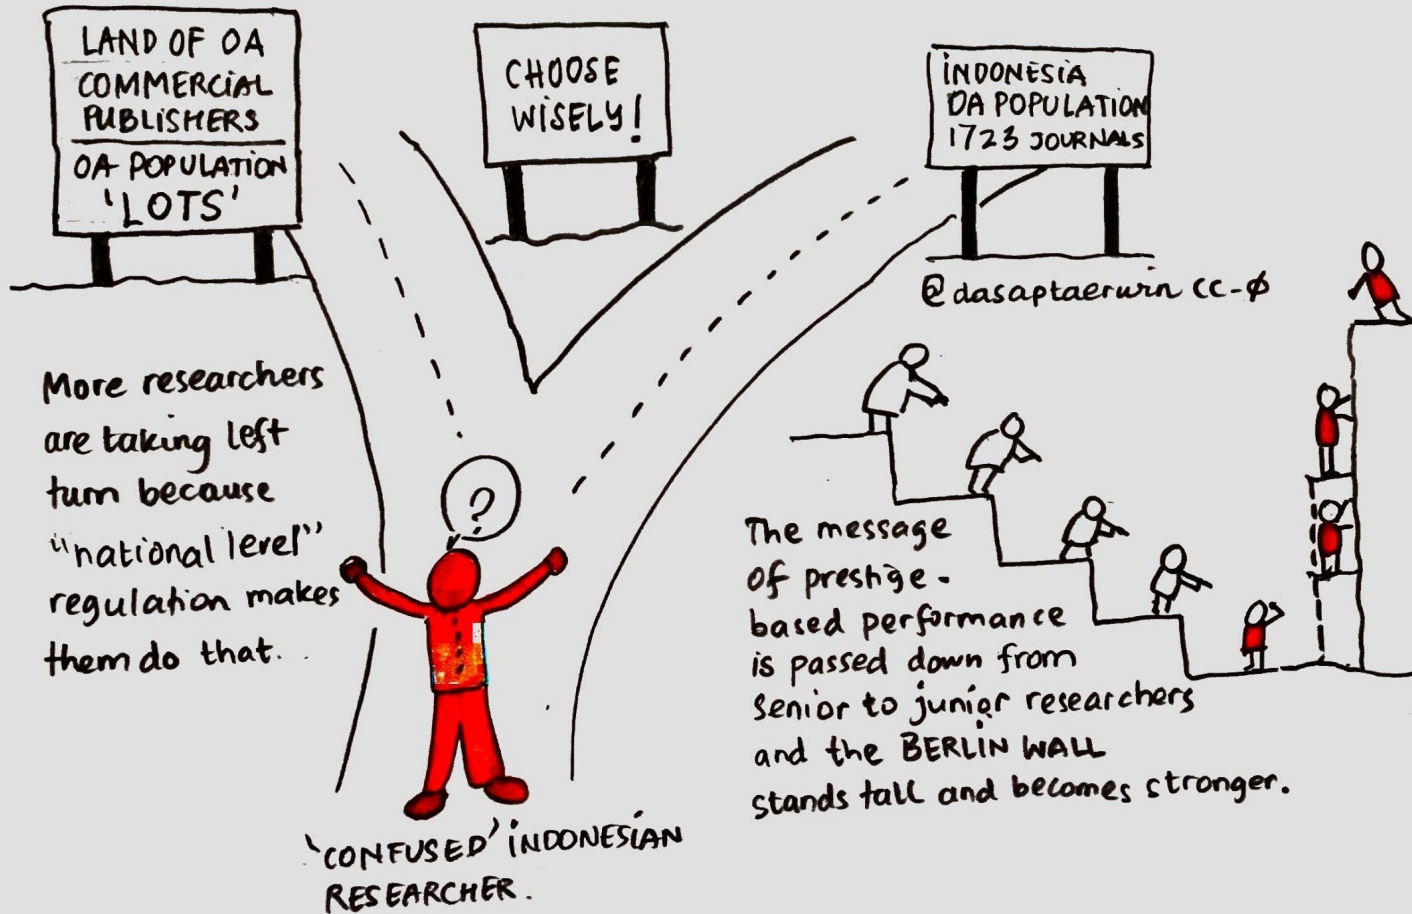 LAND OF OA
COMMERCIAL
PUBLISHERS
OA POPULATION
'LOTS'
CHOOSE
WISELY!
INDONESIA
OA POPULATION
1723 JOURNALS
@dasaptaerwin CC-Ø
More researchers
are taking left
turn because
"national level"
regulation makes
them do that.
?
'CONFUSED' INDONESIAN
RESEARCHER.
The message
of prestige-
based performance
is passed down from
senior to junior researchers
and the BERLIN WALL
stands tall and becomes stronger.